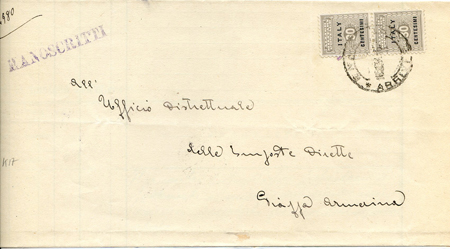 980
MANOSCRITTI
ITALY 50 CENTESIMI
ITALY 50 CENTESIMI
All'
Ufficio Distrettuale
delle Imposte Dirette
K17
Piazza Armerina